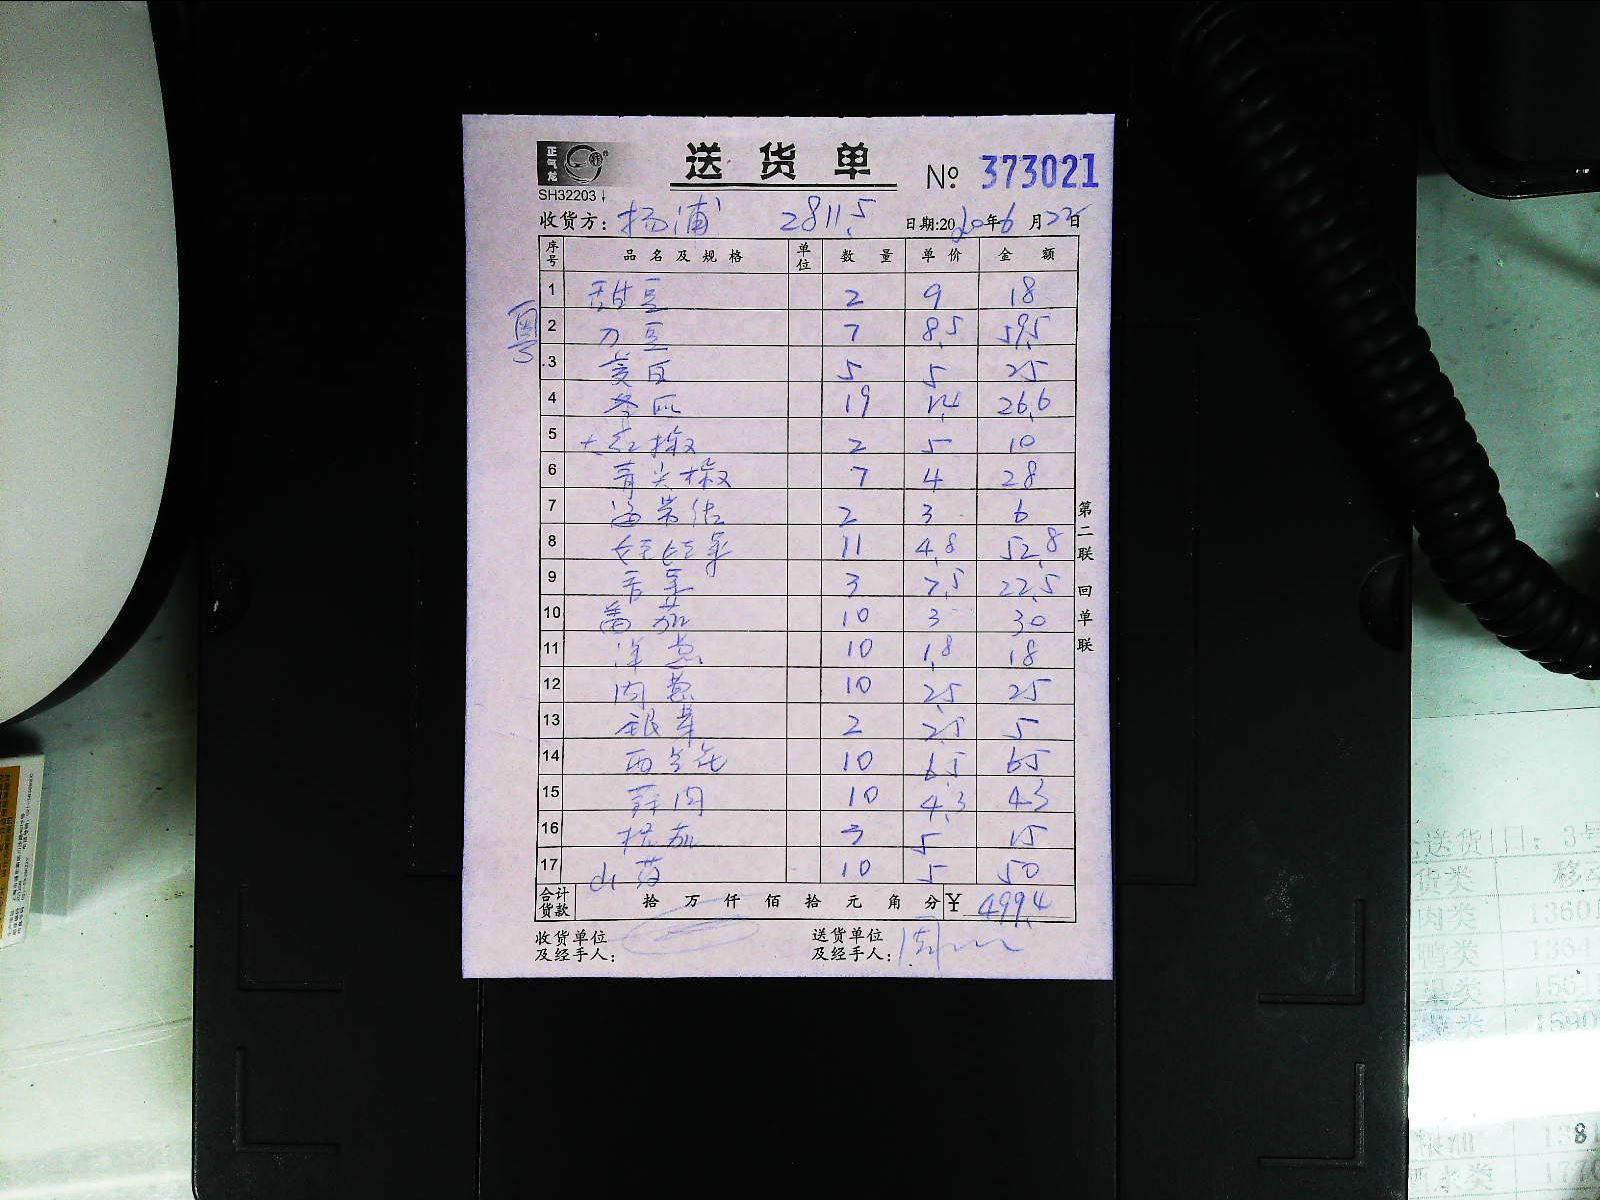 正气龙
SH32203
送货单 № 373021
收货方: 扬浦 2811.5 日期:2020年6月22日
序号 品名及规格 单位 数量 单价 金额
1 甜豆 2 9 18
粤
2 刀豆 7 8.5 59.5
3 黄瓜 5 5 25
4 冬瓜 19 1.4 26.6
5 大红椒 2 5 10
6 青尖椒 7 4 28
7 海带结 2 3 6
8 娃娃菜 11 4.8 52.8
9 3 7.5 22.5
10 番茄 10 3 30
11 洋葱 10 1.8 18
12 肉葱 10 2.5 25
13 银芽 2 2.5 5
14 西兰花 10 6.5 65
15 10 4.3 43
16 杭茄 3 5 15
17 山药 10 5 50
合计货款 拾 万 仟 佰 拾 元 角 分 ¥ 499.4
收货单位及经手人:
送货单位及经手人: 周
第二联 回单联
送货 日: 3号
货类 移
肉类 1360
鸭类
类 1590
1381
类 177